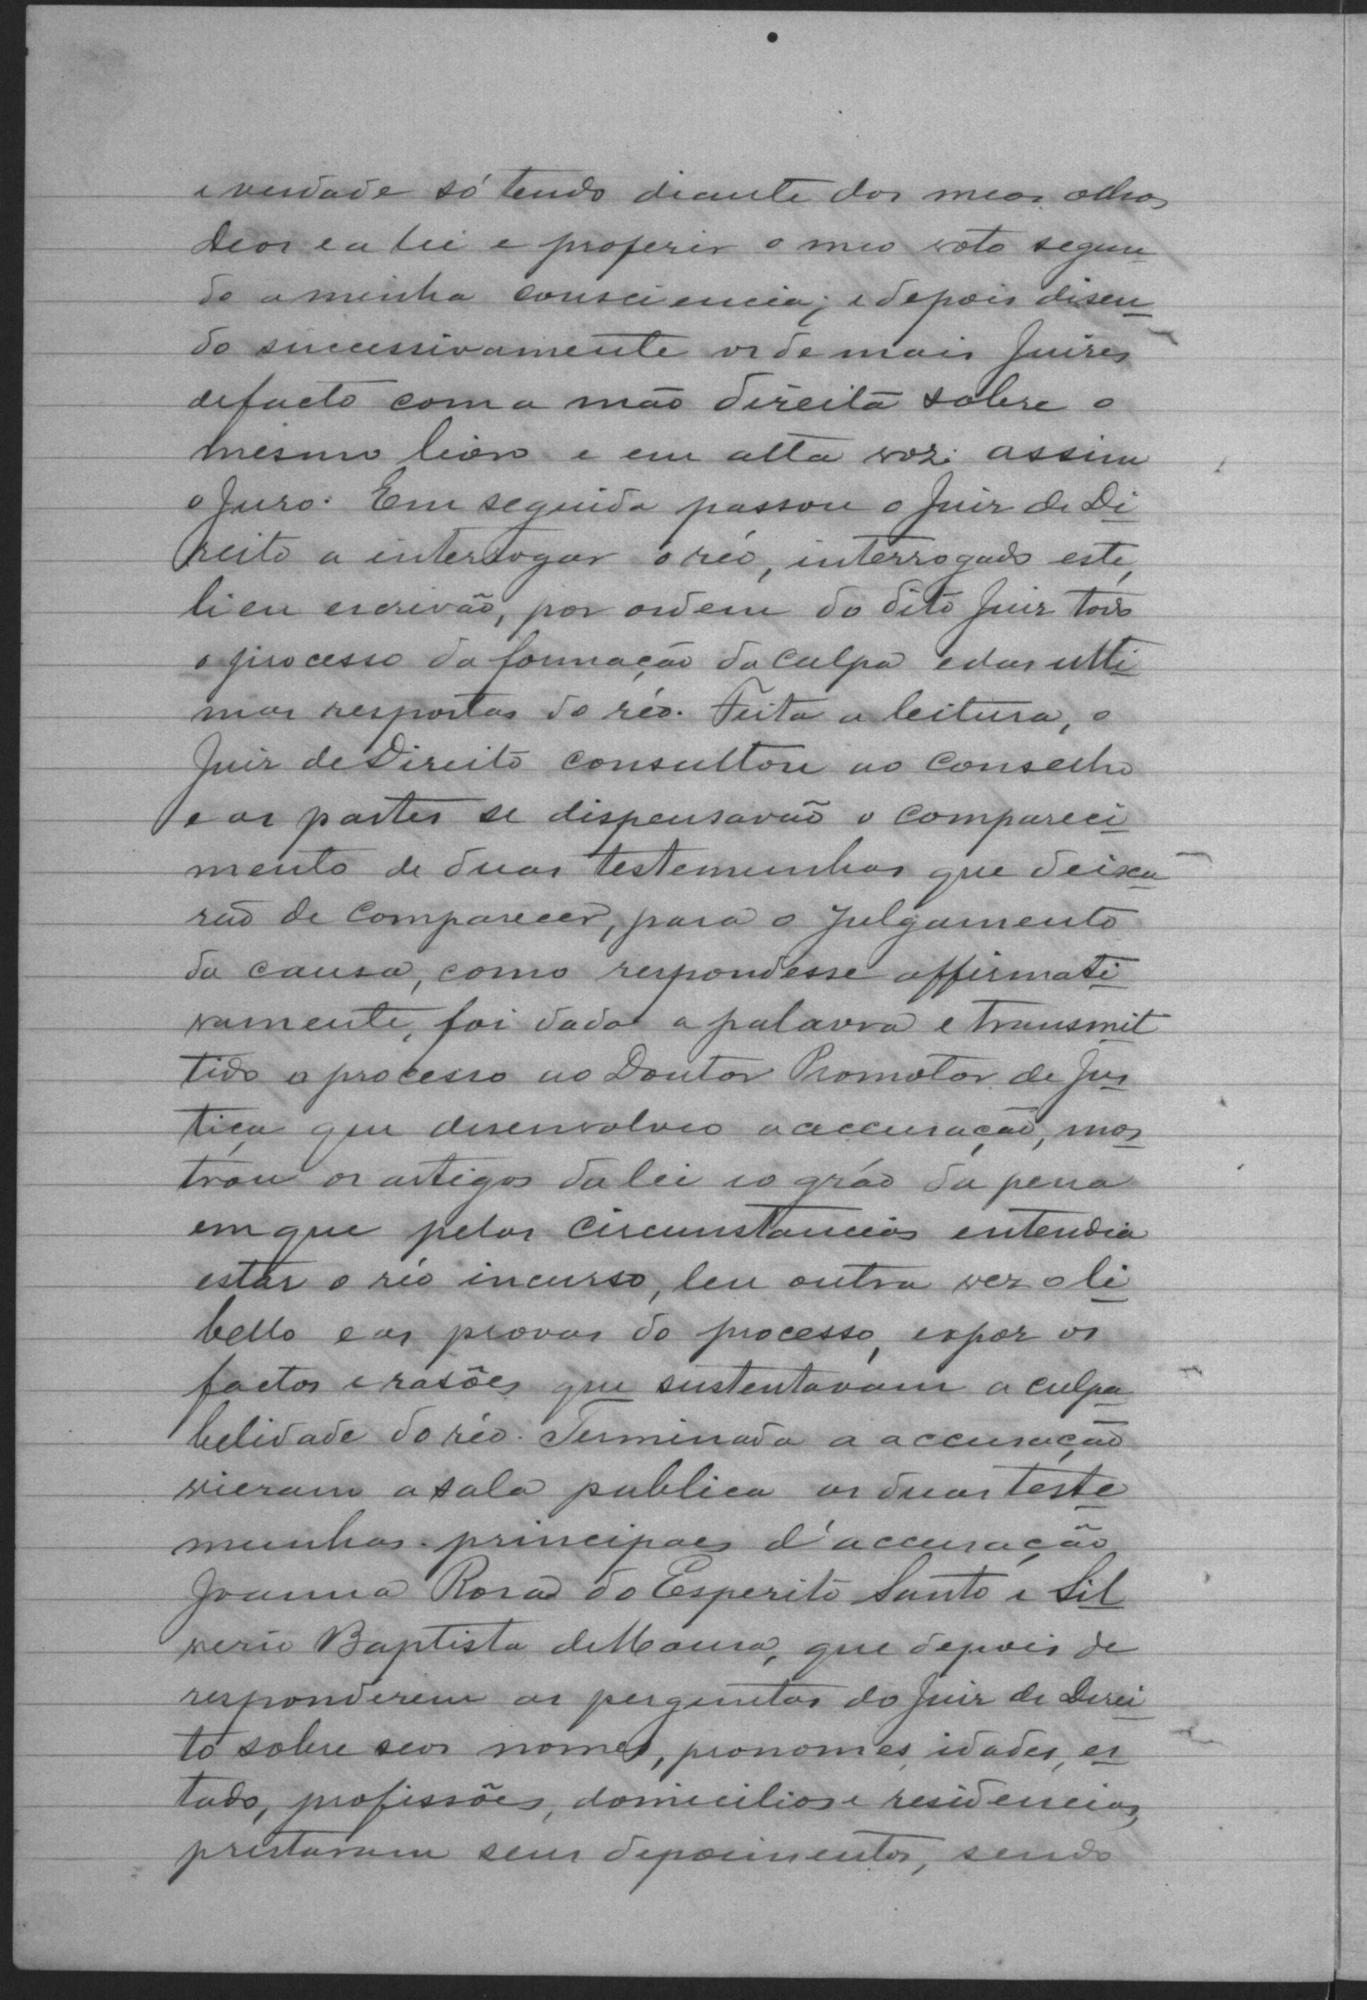 e verdade só tendo diante dos meos olhos
Deos e a lei e proferir o meo voto segun
do a minha consciencia; e depois disen
do successivamente os demais Juizes
de facto com a mão direita sobre o
mesmo livro e em alta voz: assim
o juro. Em seguida passou o Juiz de Di
reito a interrogar o réo, interrogado este,
li eu escrivão, por ordem do dito Juiz todo
o processo da formação da culpa e das ulti
mas respostas do réo. Feita a leitura, o
Juiz de Direito consultou ao Conselho
e as partes se dispensavão o compareci
mento de duas testemunhas que deixa
rão de comparecer, para o julgamento
da causa, como respondesse affirmati
vamente, foi dada a palavra e transmit
tido o processo ao Doutor Promotor de Jus
tiça que desenvolveo a accusação, mos
trou os artigos da lei e o gráo da pena
em que pelas circumstancias entendia
estar o réo incurso, leu outra vez o li
bello e as provas do processo, expoz os
factos e rasões que sustentavam a culpa
belidade do réo. Terminada a accusação
vieram a sala publica as duas teste
munhas principaes d'accusação
Joanna Rosa do Esperito Santo e Sil
verio Baptista de Moura, que depois de
responderem as perguntas do Juiz de Direi
to sobre seos nomes, pronomes, idades, es
tado, profissões, domicilios e residencias,
prestaram seus depoimentos, sendo